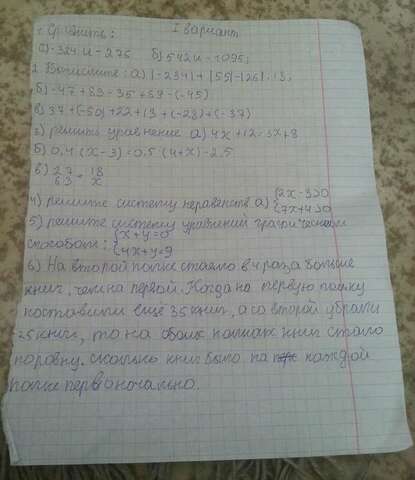 I вариант
1. Сравнить:
а) -324 и -276 б) 542 и -1095;
2. Вычислите: а) |-234| + |55| -|26| · |3|
б) -47 + 83 - 35 + 57 - (-45)
в) 37 + (-50) + 22 + 13 + (-28) + (-37)
3) решить уравнение а) 4x + 12 = 3x + 8
б) 0,4 (x - 3) = 0.5 (4 + x) - 2.5
в) 27/63 = 18/x
4) решите систему неравенств а) {2x - 3>0
{7x + 4>0
5) решите систему уравнений графическим
способом: {x + y = 0
{4x + y = 9
6) На второй полке стояло в 4 раза больше
книг, чем на первой. Когда на первую полку
поставили ещё 35 книг, а со второй убрали
25 книг, то на обоих полках книг стало
поровну. сколько книг было на каждой
полке первоначально.